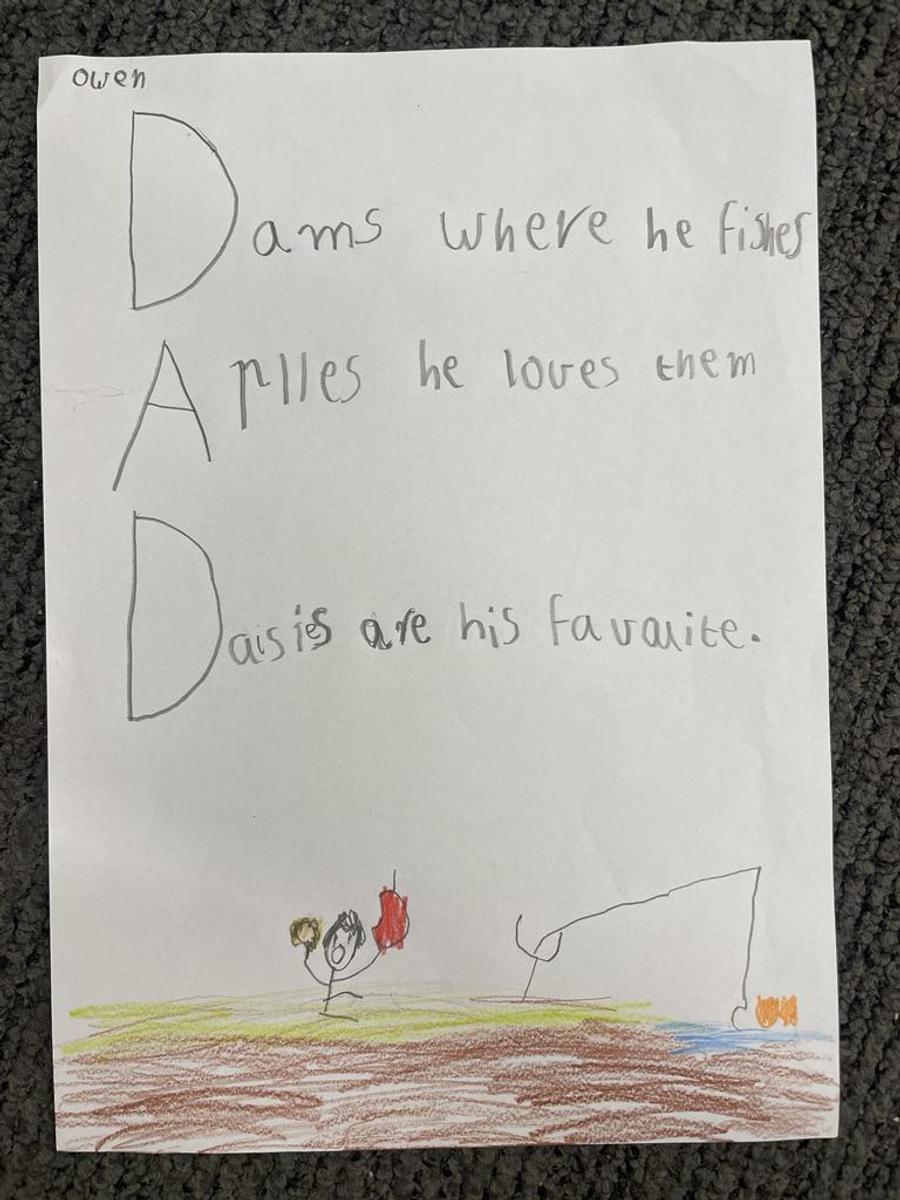 Owen
Dams where he fishes
Aplles he loves them
Daisies are his favauite.